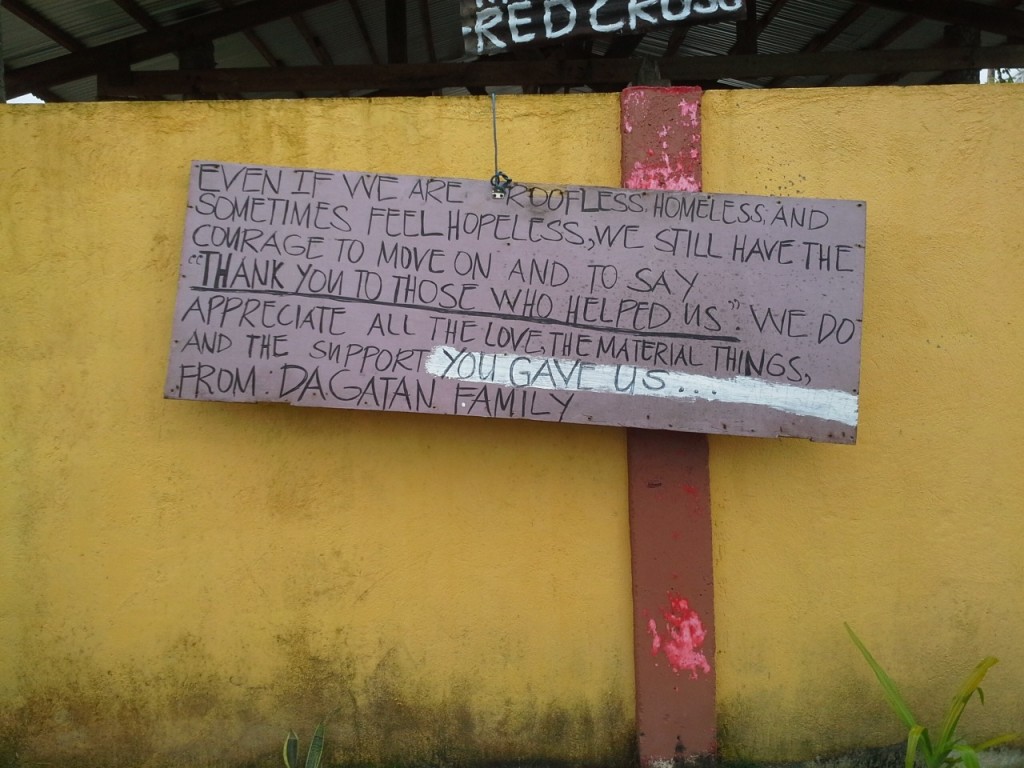 RED CROSS
EVEN IF WE ARE ROOFLESS, HOMELESS AND
SOMETIMES FEEL HOPELESS, WE STILL HAVE THE
COURAGE TO MOVE ON AND TO SAY
"THANK YOU TO THOSE WHO HELPED US". WE DO
APPRECIATE ALL THE LOVE, THE MATERIAL THINGS,
AND THE SUPPORT YOU GAVE US..
FROM DAGATAN FAMILY